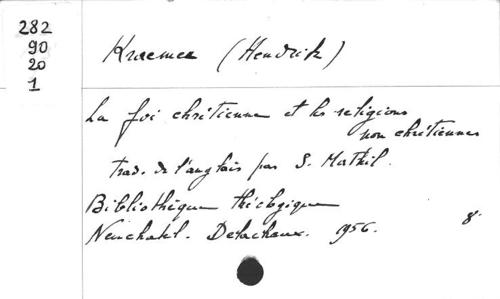 282
90
20
1
Kraemer (Hendrik)
La foi chrétienne et les religions
non chrétiennes
trad. de l'anglais par S. Mathil.
Bibliothèque théologique
Neuchatel. Delachaux. 1956. 8°